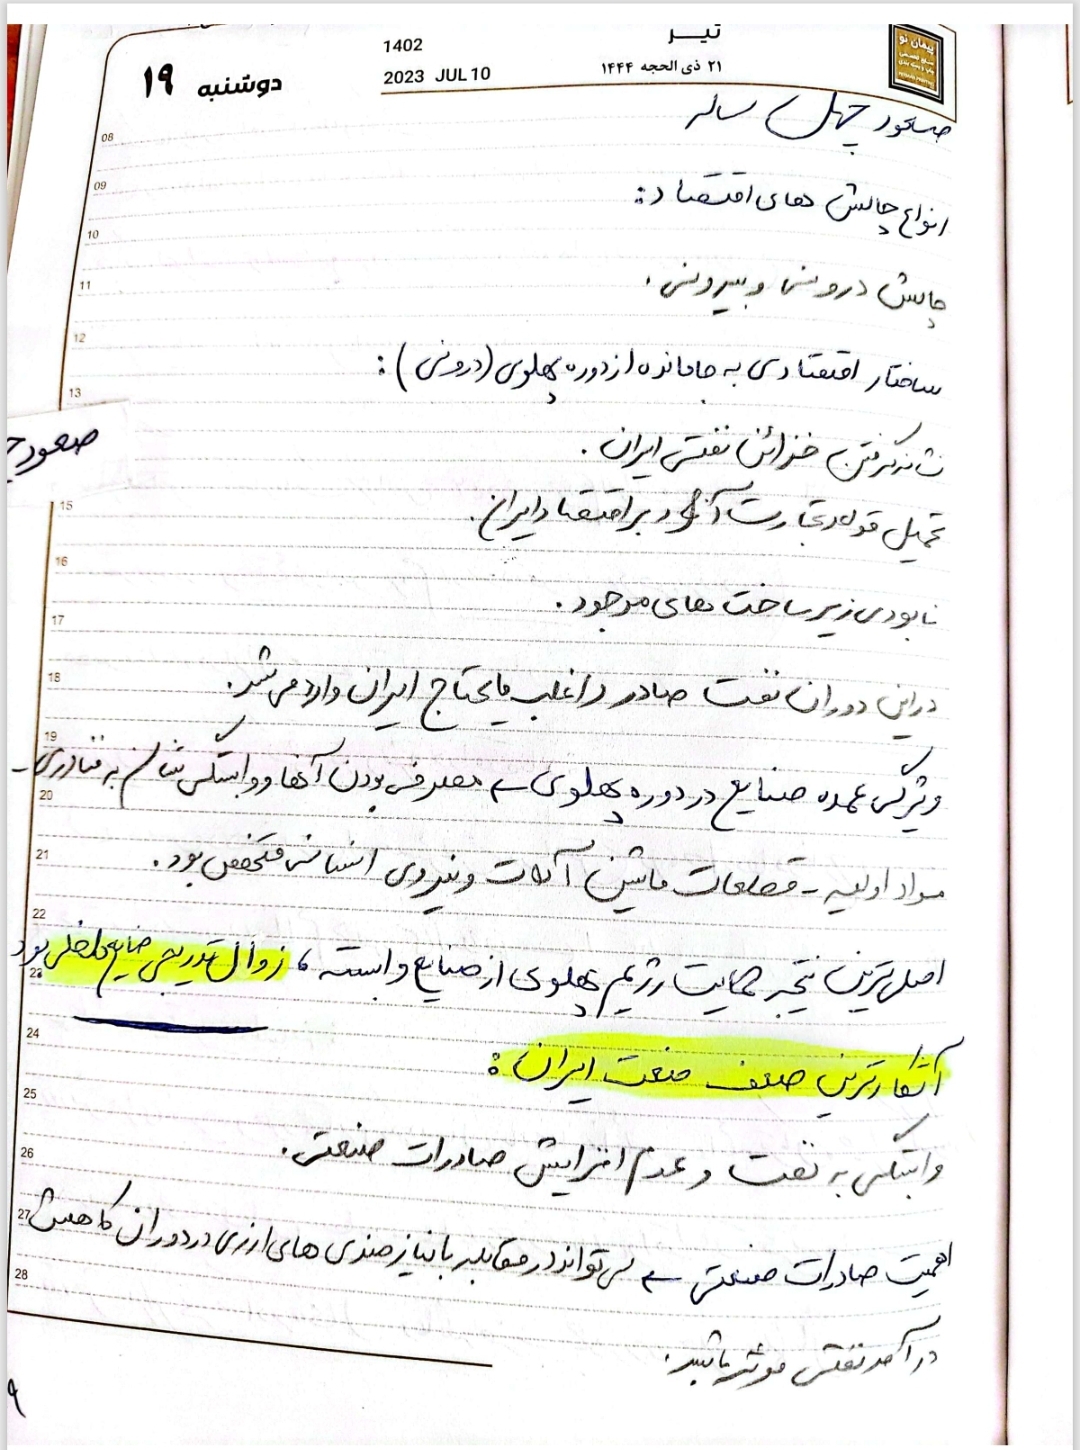 تیر
1402
۲۱ ذی الحجه ۱۴۴۴
2023 JUL 10
دوشنبه ۱۹
پیمان نو
صعود چهل ساله
08
انواع چالش های اقتصاد:
09
10
چالش درونی و بیرونی.
11
12
ساختار اقتصادی به جا مانده از دوره پهلوی (درونی):
13
صعود چ
نشانه گرفتن خزائن نفتی ایران.
15
تحمیل قواعد تجارت آزاد بر اقتصاد ایران.
16
نابودی زیر ساخت های موجود.
17
18
در این دوران نفت صادر و اغلب مایحتاج ایران وارد می شد.
19
ویژگی عمده صنایع در دوره پهلوی ← مصرفی بودن آنها و وابستگی شان به فناوری -
20
21
مواد اولیه - قطعات ماشین آلات و نیروی انسانی متخصص بود.
22
اصلی ترین نتیجه حمایت رژیم پهلوی از صنایع وابسته، زوال تدریجی صنایع داخلی بود
23
24
آشکارترین ضعف صنعت ایران:
25
وابستگی به نفت و عدم افزایش صادرات صنعتی.
26
27
اهمیت صادرات صنعتی ← می تواند در مقابله با نیازمندی های ارزی در دوران کاهش
28
درآمد نفتی موثر باشد.
۹